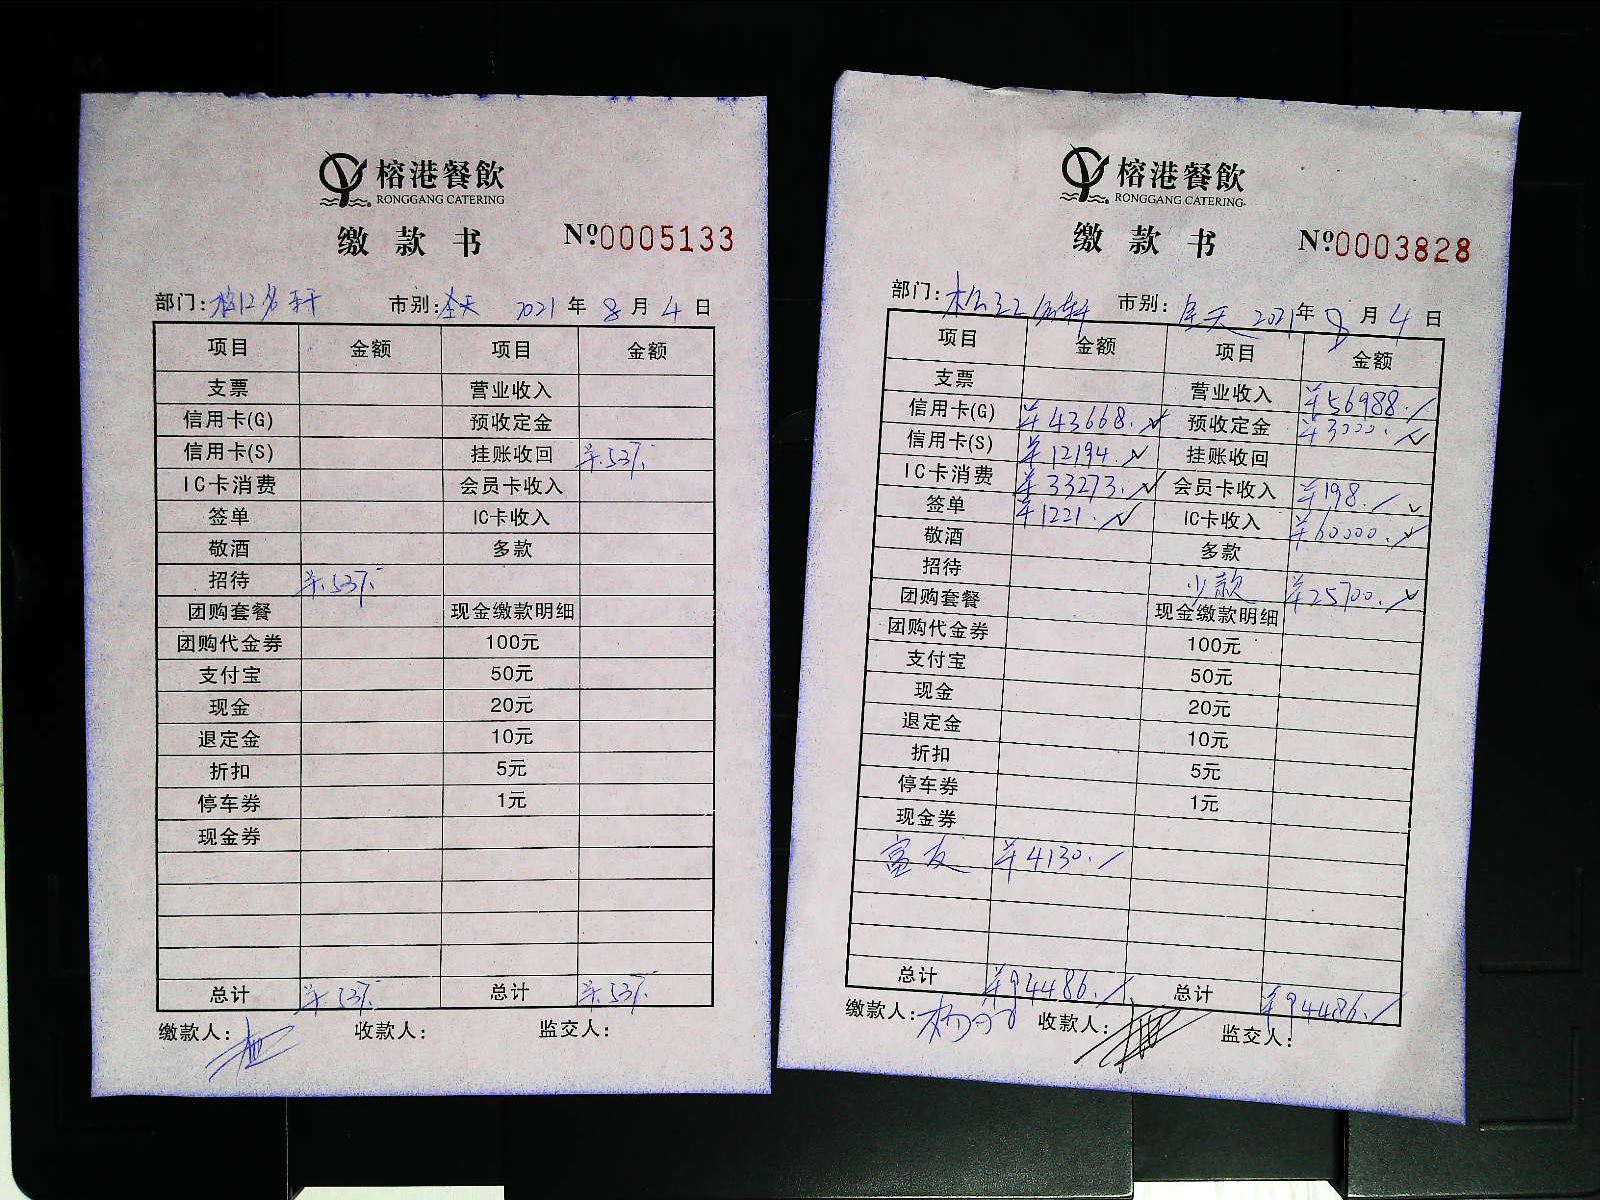 榕港餐飲
RONGGANG CATERING
缴款书 Nº0005133
部门: 市别:全天 2021年8月4日
项目 金额 项目 金额
支票 营业收入
信用卡(G) 预收定金
信用卡(S) 挂账收回 ¥537.
IC卡消费 会员卡收入
签单 IC卡收入
敬酒 多款
招待 ¥537.
团购套餐 现金缴款明细
团购代金券 100元
支付宝 50元
现金 20元
退定金 10元
折扣 5元
停车券 1元
现金券
总计 ¥537. 总计 ¥537.
缴款人: 收款人: 监交人:
榕港餐飲
RONGGANG CATERING
缴款书 Nº0003828
部门: 市别:全天 2021年8月4日
项目 金额 项目 金额
支票 营业收入 ¥56988.
信用卡(G) ¥43668. 预收定金 ¥3000.
信用卡(S) ¥12194. 挂账收回
IC卡消费 ¥33273. 会员卡收入 ¥198.
签单 ¥1221. IC卡收入 ¥60000.
敬酒 多款
招待 少款 ¥25700.
团购套餐 现金缴款明细
团购代金券 100元
支付宝 50元
现金 20元
退定金 10元
折扣 5元
停车券 1元
现金券
富友 ¥4130.
总计 ¥94486. 总计 ¥94486.
缴款人: 收款人: 监交人: